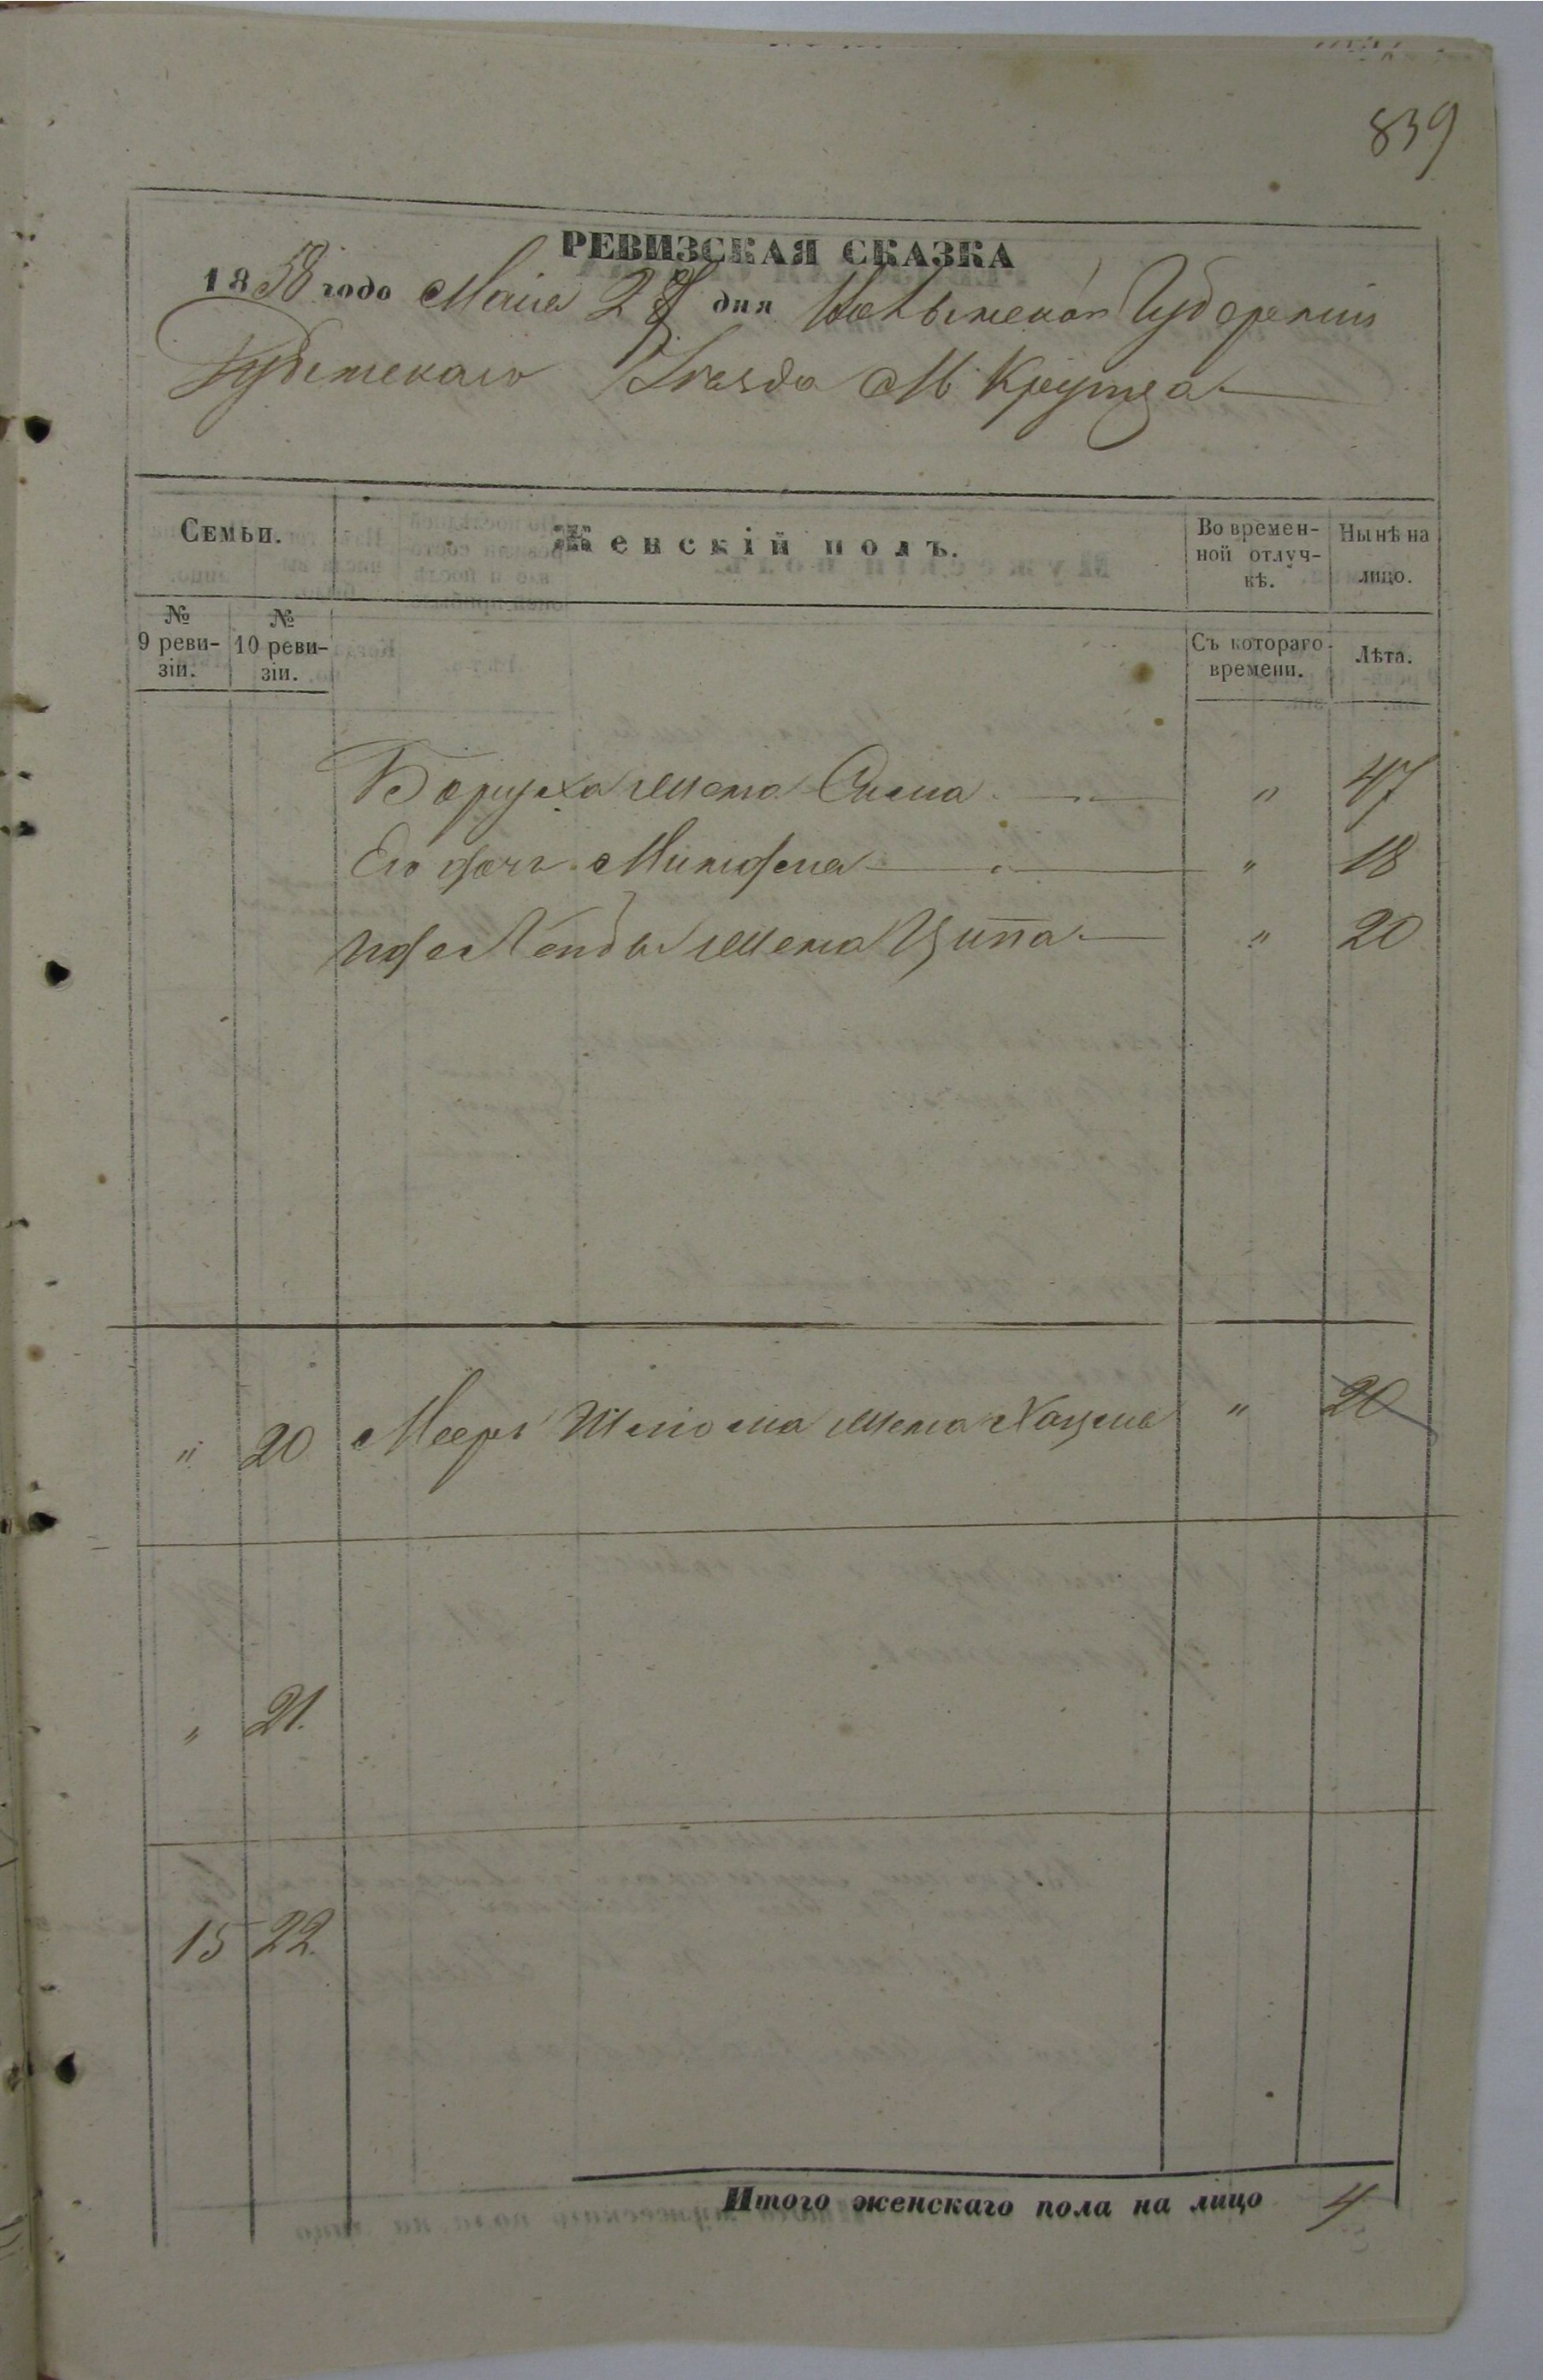 839
РЕВИЗСКАЯ СКАЗКА
1858 года Маия 28 дня Волынской Губернии
Дубенскаго Уезда М. Крупца
Семьи.
Женскій полъ.
Во времен-
ной отлуч-
кѣ.
Нынѣ на
лицо.
№
9 реви-
зіи.
№
10 реви-
зіи.
Съ котораго
времени.
Лѣта.
Боруха жена " 47
Его дочь " 18
жена Ципа " 20
" 20 Меера Шлиома жена " 20
" 21.
15 22.
Итого женскаго пола на лицо 4